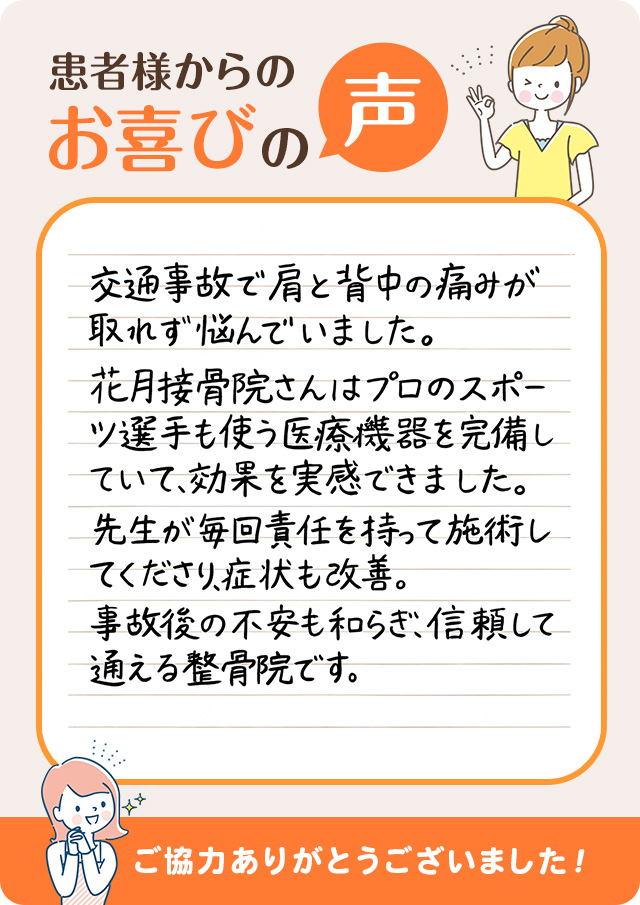 患者様からの
お喜びの声
交通事故で肩と背中の痛みが
取れず悩んでいました。
花月接骨院さんはプロのスポー
ツ選手も使う医療機器を完備し
ていて、効果を実感できました。
先生が毎回責任を持って施術し
てくださり、症状も改善。
事故後の不安も和らぎ、信頼して
通える整骨院です。
ご協力ありがとうございました！